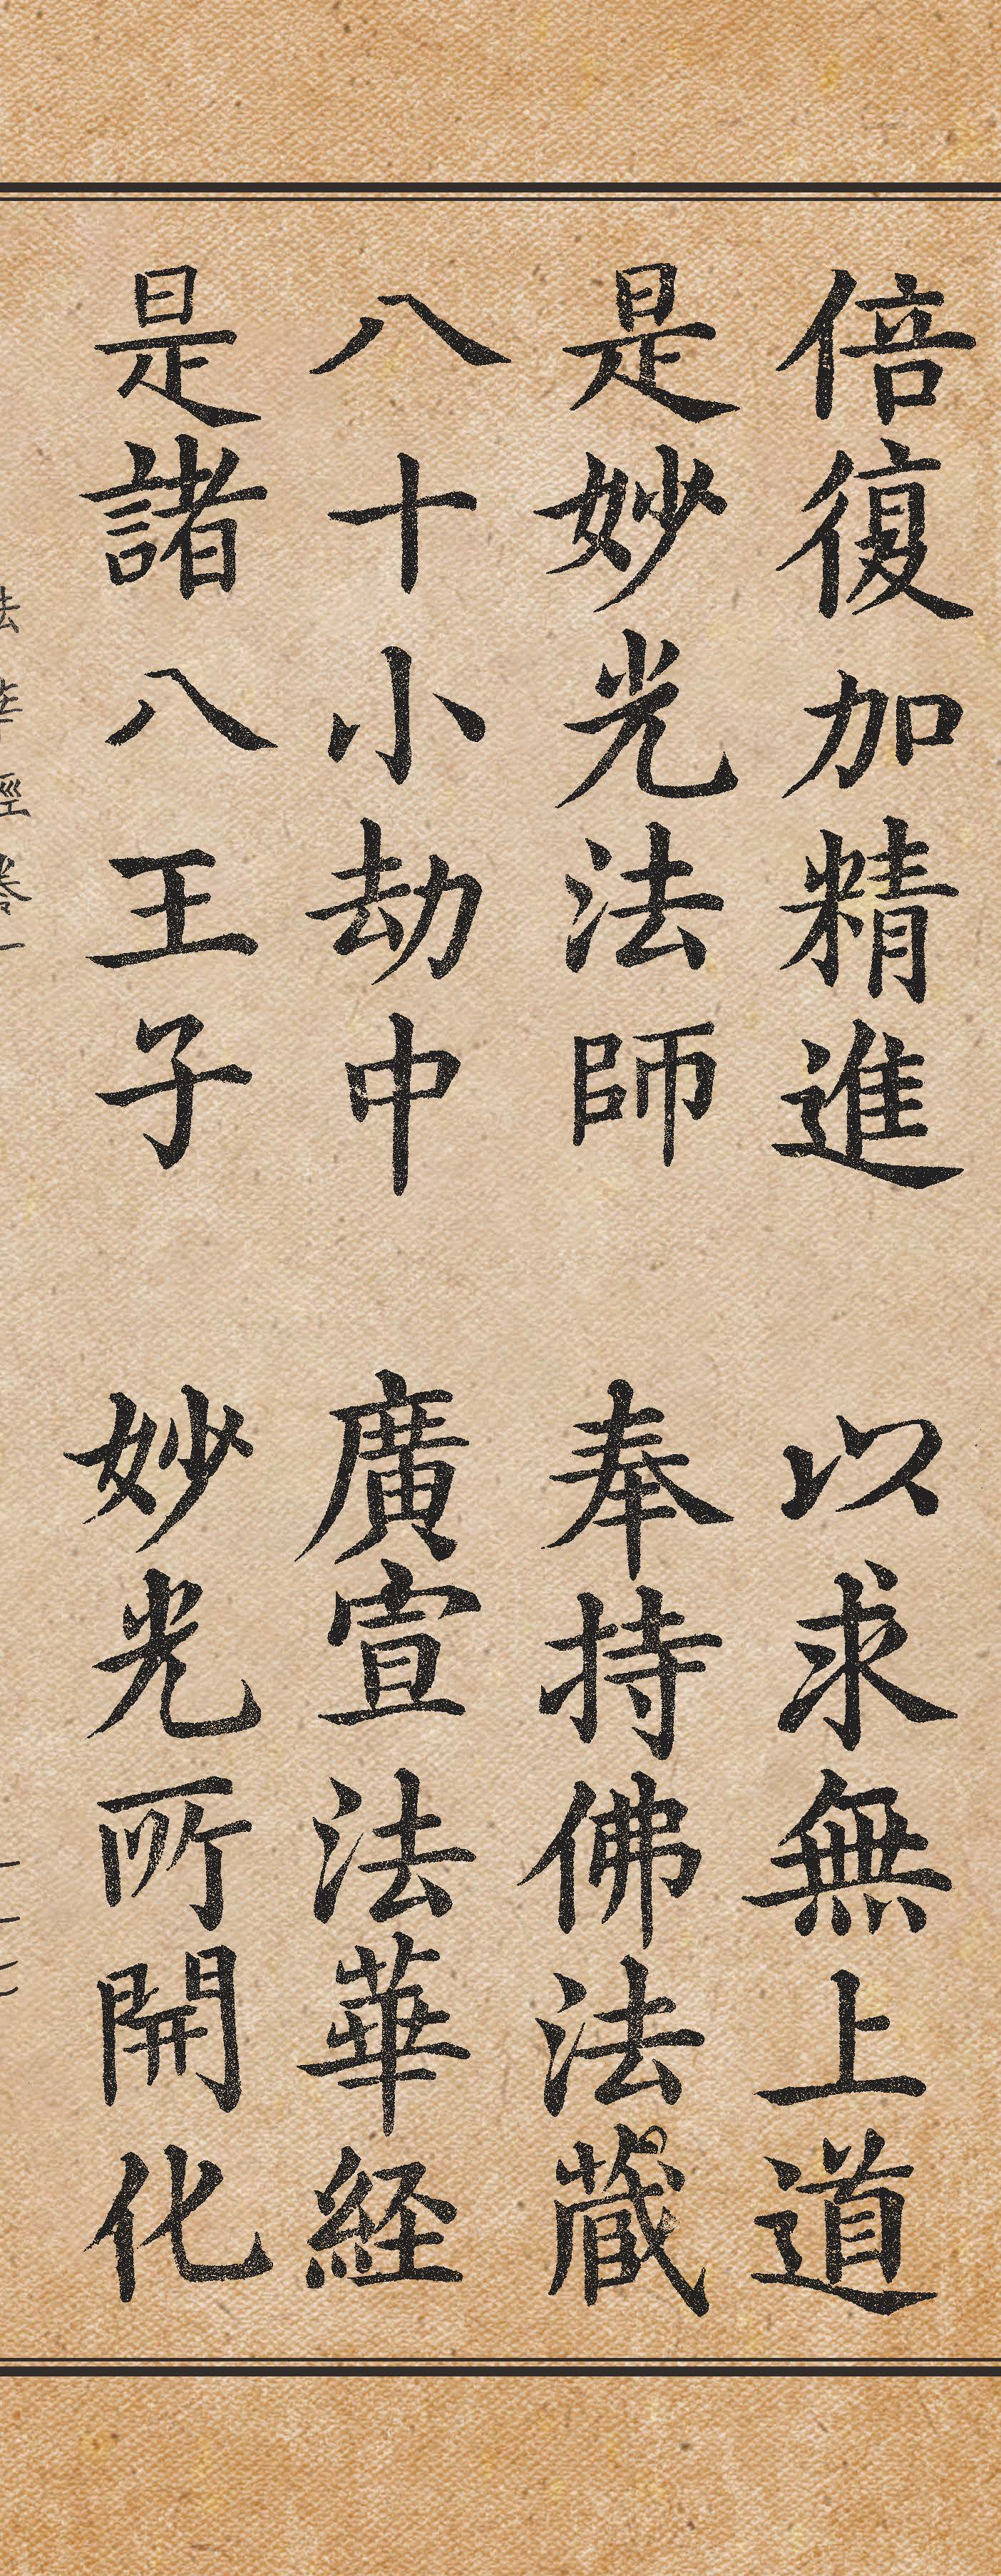 倍復加精進 以求無上道
是妙光法師 奉持佛法藏
八十小劫中 廣宣法華経
是諸八王子 妙光所開化
法華經卷一 一一七